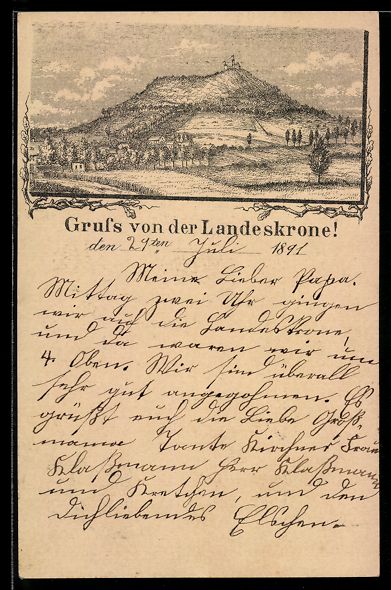 Gruſs von der Landeskrone!
den 29ten Juli 1891
Meine Lieber Papa.
Mittag zwei Uhr gingen
wir auf die Landeskrone,
und da waren wir um
4. Oben. Wir sind überall
sehr gut angegohmen. Es
grüßt euch die Liebe Groß
mama Tante Kirchner Frau
Klaßmann Herr Klaßmann
und Gretchen, und den
Dichliebendes Elschen.